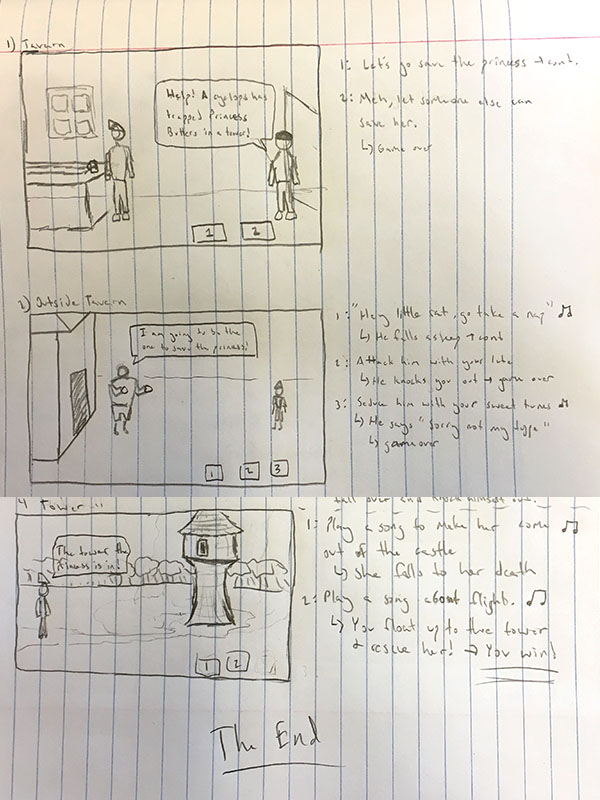 1) Tavern
Help! A cyclops has
trapped Princess
Butters in a tower!
1 2
1: Let's go save the princess → cont.
2: Meh, let someone else can
save her.
↳ Game over
2) Outside Tavern
I am going to be the
one to save the princess!
1 2 3
1: "Hey little cat, go take a nap" ♫
↳ He falls asleep → cont
2: Attack him with your lute
↳ He knocks you out → game over
3: Seduce him with your sweet tunes ♫
↳ He says "Sorry not my type"
↳ game over
fall over and knock himself out.
4 Tower
The tower the
princess is in!
1 2
1: Play a song to make her come ♫
out of the castle
↳ She falls to her death
2: Play a song about flight. ♫
↳ You float up to the tower
& rescue her! → You win!
The End